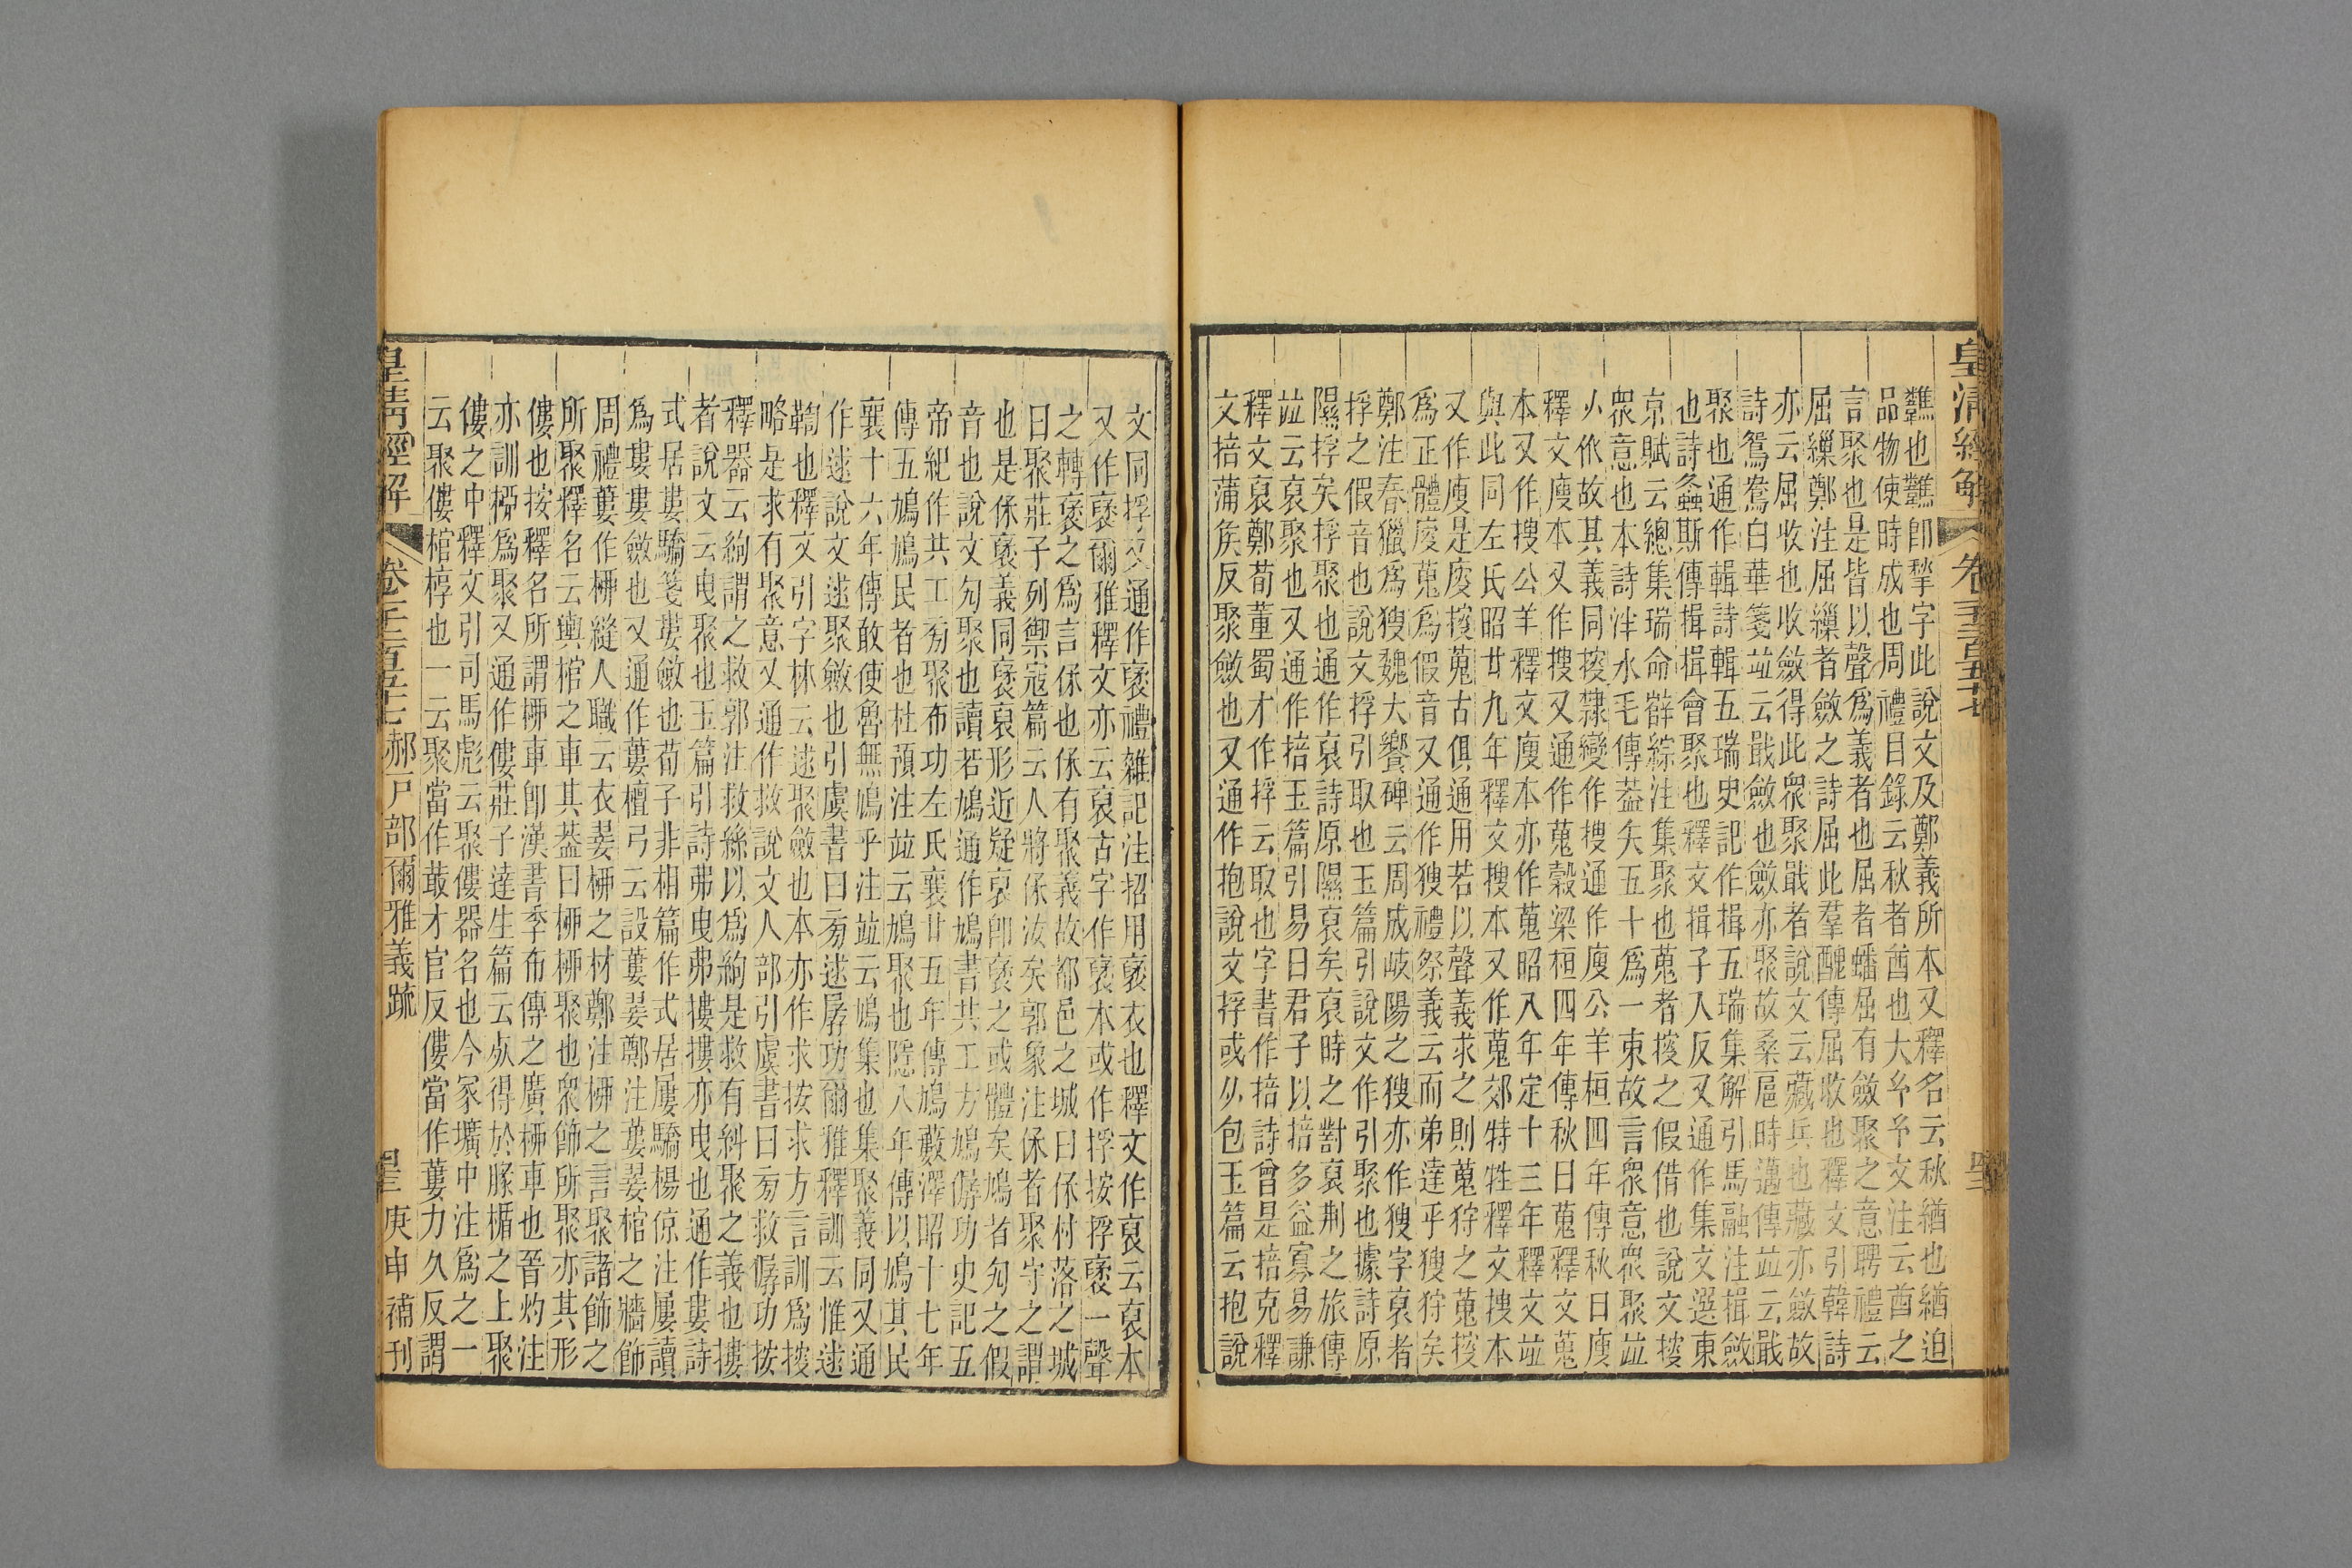 皇清經解
卷千二百五十七
䪼也䪼卽揫字此說文及鄭義所本又釋名云秋緧也緧迫
品物使時成也周禮目錄云秋者酋也大𤣥𤣥文注云酋之
言聚也是皆以聲爲義者也屈者蟠屈有斂聚之意聘禮云
屈繅鄭注屈繅者斂之詩屈此羣醜傳屈收也釋文引韓詩
亦云屈收也收斂得此眾聚戢者說文云藏兵也藏亦斂故
詩鴛鴦白華箋竝云戢斂也斂亦聚故桑扈時邁傳竝云戢
聚也通作輯詩輯五瑞史記作揖五瑞集解引馬融注揖斂
也詩螽斯傳揖揖會聚也釋文揖子入反又通作集文選東
京賦云總集瑞命薛綜注集聚也蒐者搜之假借也說文搜
眾意也本詩泮水毛傳葢矢五十爲一束故言眾意眾聚竝
从㐺故其義同搜隸變作搜通作廋公羊桓四年傳秋曰廋
釋文廋本又作搜又通作蒐穀梁桓四年傳秋曰蒐釋文蒐
本又作搜公羊釋文廋本亦作蒐昭八年定十三年釋文竝
與此同左氏昭廿九年釋文搜本又作蒐郊特牲釋文搜本
又作廋是廋搜蒐古俱通用若以聲義求之則蒐狩之蒐搜
爲正體廋蒐爲假音又通作獀禮祭義云而弟達乎獀狩矣
鄭注春獵爲獀魏大饗碑云周成岐陽之獀亦作獀字裒者
捊之假音也說文捊引取也玉篇引說文作引聚也據詩原
隰捊矣捊聚也通作裒詩原隰裒矣裒時之對裒荆之旅傳
竝云裒聚也又通作掊玉篇引易曰君子以掊多益寡易謙
釋文裒鄭荀董蜀才作捊云取也字書作掊詩曾是掊克釋
文掊蒲矦反聚斂也又通作抱說文捊或从包玉篇云抱說
文同捊又通作褎禮雜記注招用褎衣也釋文作裒云裒本
又作褎爾雅釋文亦云裒古字作褎本或作捊按捊褎一聲
之轉褎之爲言保也保有聚義故都邑之城曰保村落之城
曰聚莊子列禦寇篇云人將保汝矣郭象注保者聚守之謂
也是保褎義同褎裒形近疑裒卽褎之或體矣鳩者勼之假
音也說文勼聚也讀若鳩通作鳩書共工方鳩僝功史記五
帝紀作共工旁聚布功左氏襄廿五年傳鳩藪澤昭十七年
傳五鳩鳩民者也杜預注竝云鳩聚也隱八年傳以鳩其民
襄十六年傳敢使魯無鳩乎注竝云鳩集也集聚義同又通
作逑說文逑聚斂也引虞書曰旁逑孱功爾雅釋訓云惟逑
鞫也釋文引字林云逑聚斂也本亦作求按求方言訓爲搜
略是求有聚意又通作救說文人部引虞書曰旁救僝功按
釋器云絇謂之救郭注救絲以爲絇是救有糾聚之義也摟
者說文云曳聚也玉篇引詩弗曳弗摟摟亦曳也通作婁詩
式居婁驕箋婁斂也荀子非相篇作式居屢驕楊倞注屢讀
爲婁婁斂也又通作蔞檀弓云設蔞翣鄭注蔞翣棺之牆飾
周禮蔞作柳縫人職云衣翣柳之材鄭注柳之言聚諸飾之
所聚釋名云輿棺之車其葢曰柳柳聚也眾飾所聚亦其形
僂也按釋名所謂柳車卽漢書季布傳之廣柳車也晉灼注
亦訓柳爲聚又通作僂莊子達生篇云死得於腞楯之上聚
僂之中釋文引司馬彪云聚僂器名也今冢壙中注爲之一
云聚僂棺椁也一云聚當作菆才官反僂當作蔞力久反謂
皇淸經解
卷千二百五十七
郝戶部爾雅義疏
庚申補刊